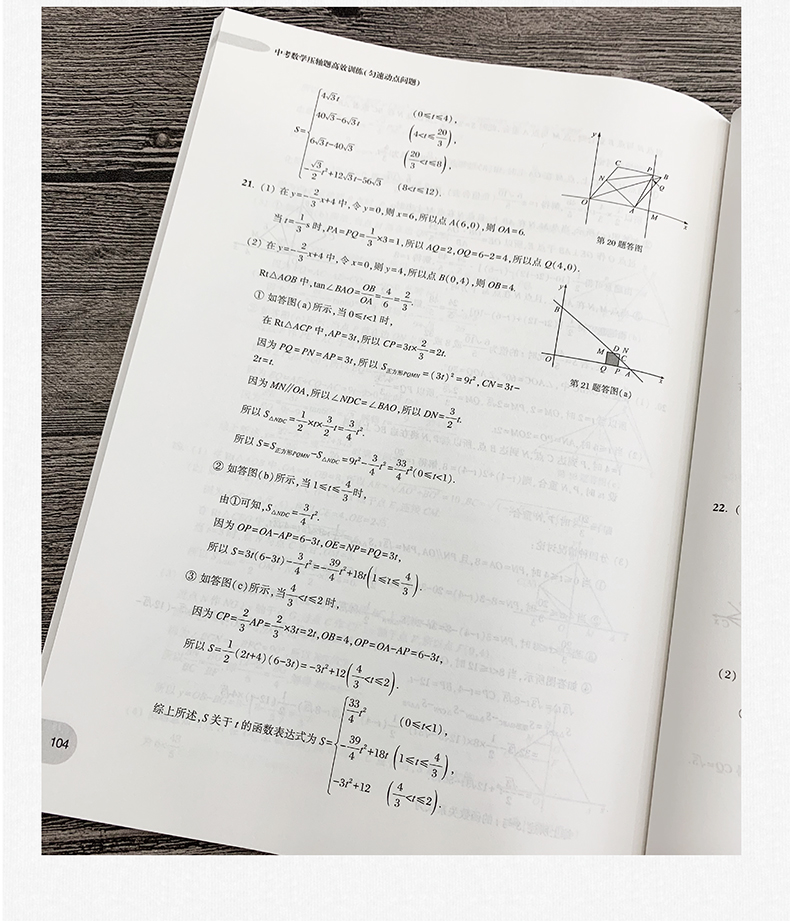 中考数学压轴题高效训练(匀速动点问题)
S=
4√3t (0≤t≤4),
40√3-6√3t (4<t≤20/3),
6√3t-40√3 (20/3<t≤8),
-√3/2t²+12√3t-56√3 (8<t≤12).
y
C
P
B
N
Q
O
A
M
x
第20题答图
21. (1) 在y=-2/3x+4中,令y=0,则x=6,所以点A(6,0),则OA=6.
当t=1/3s时,PA=PQ=1/3×3=1,所以AQ=2,OQ=6-2=4,所以点Q(4,0).
(2) 在y=-2/3x+4中,令x=0,则y=4,所以点B(0,4),则OB=4.
Rt△AOB中,tan∠BAO=OB/OA=4/6=2/3.
① 如答图(a)所示,当0≤t<1时,
在Rt△ACP中,AP=3t,所以CP=3t×2/3=2t.
因为PQ=PN=AP=3t,所以S正方形PQMN=(3t)²=9t²,CN=3t-
2t=t.
y
B
D N
M
C
O
Q P A
x
第21题答图(a)
因为MN//OA,所以∠NDC=∠BAO,所以DN=3/2t.
所以S△NDC=1/2×t×3/2t=3/4t².
所以S=S正方形PQMN-S△NDC=9t²-3/4t²=33/4t²(0≤t<1).
② 如答图(b)所示,当1≤t≤4/3时,
由①可知,S△NDC=3/4t².
因为OP=OA-AP=6-3t,OE=NP=PQ=3t,
所以S=3t(6-3t)-3/4t²=-39/4t²+18t(1≤t≤4/3).
③ 如答图(c)所示,当4/3<t≤2时,
因为CP=2/3AP=2/3×3t=2t,OB=4,OP=OA-AP=6-3t,
所以S=1/2(2t+4)(6-3t)=-3t²+12(4/3<t≤2).
综上所述,S关于t的函数表达式为S=
33/4t² (0≤t<1),
-39/4t²+18t (1≤t≤4/3),
-3t²+12 (4/3<t≤2).
104
22. (
(2)